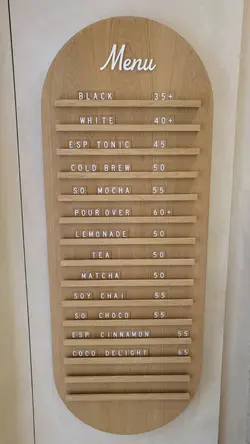 Menu
BLACK 35+
WHITE 40+
ESP TONIC 45
COLD BREW 50
SO MOCHA 55
POUR OVER 60+
LEMONADE 50
TEA 50
MATCHA 50
SOY CHAI 55
SO CHOCO 55
ESP CINNAMON 55
COCO DELIGHT 65